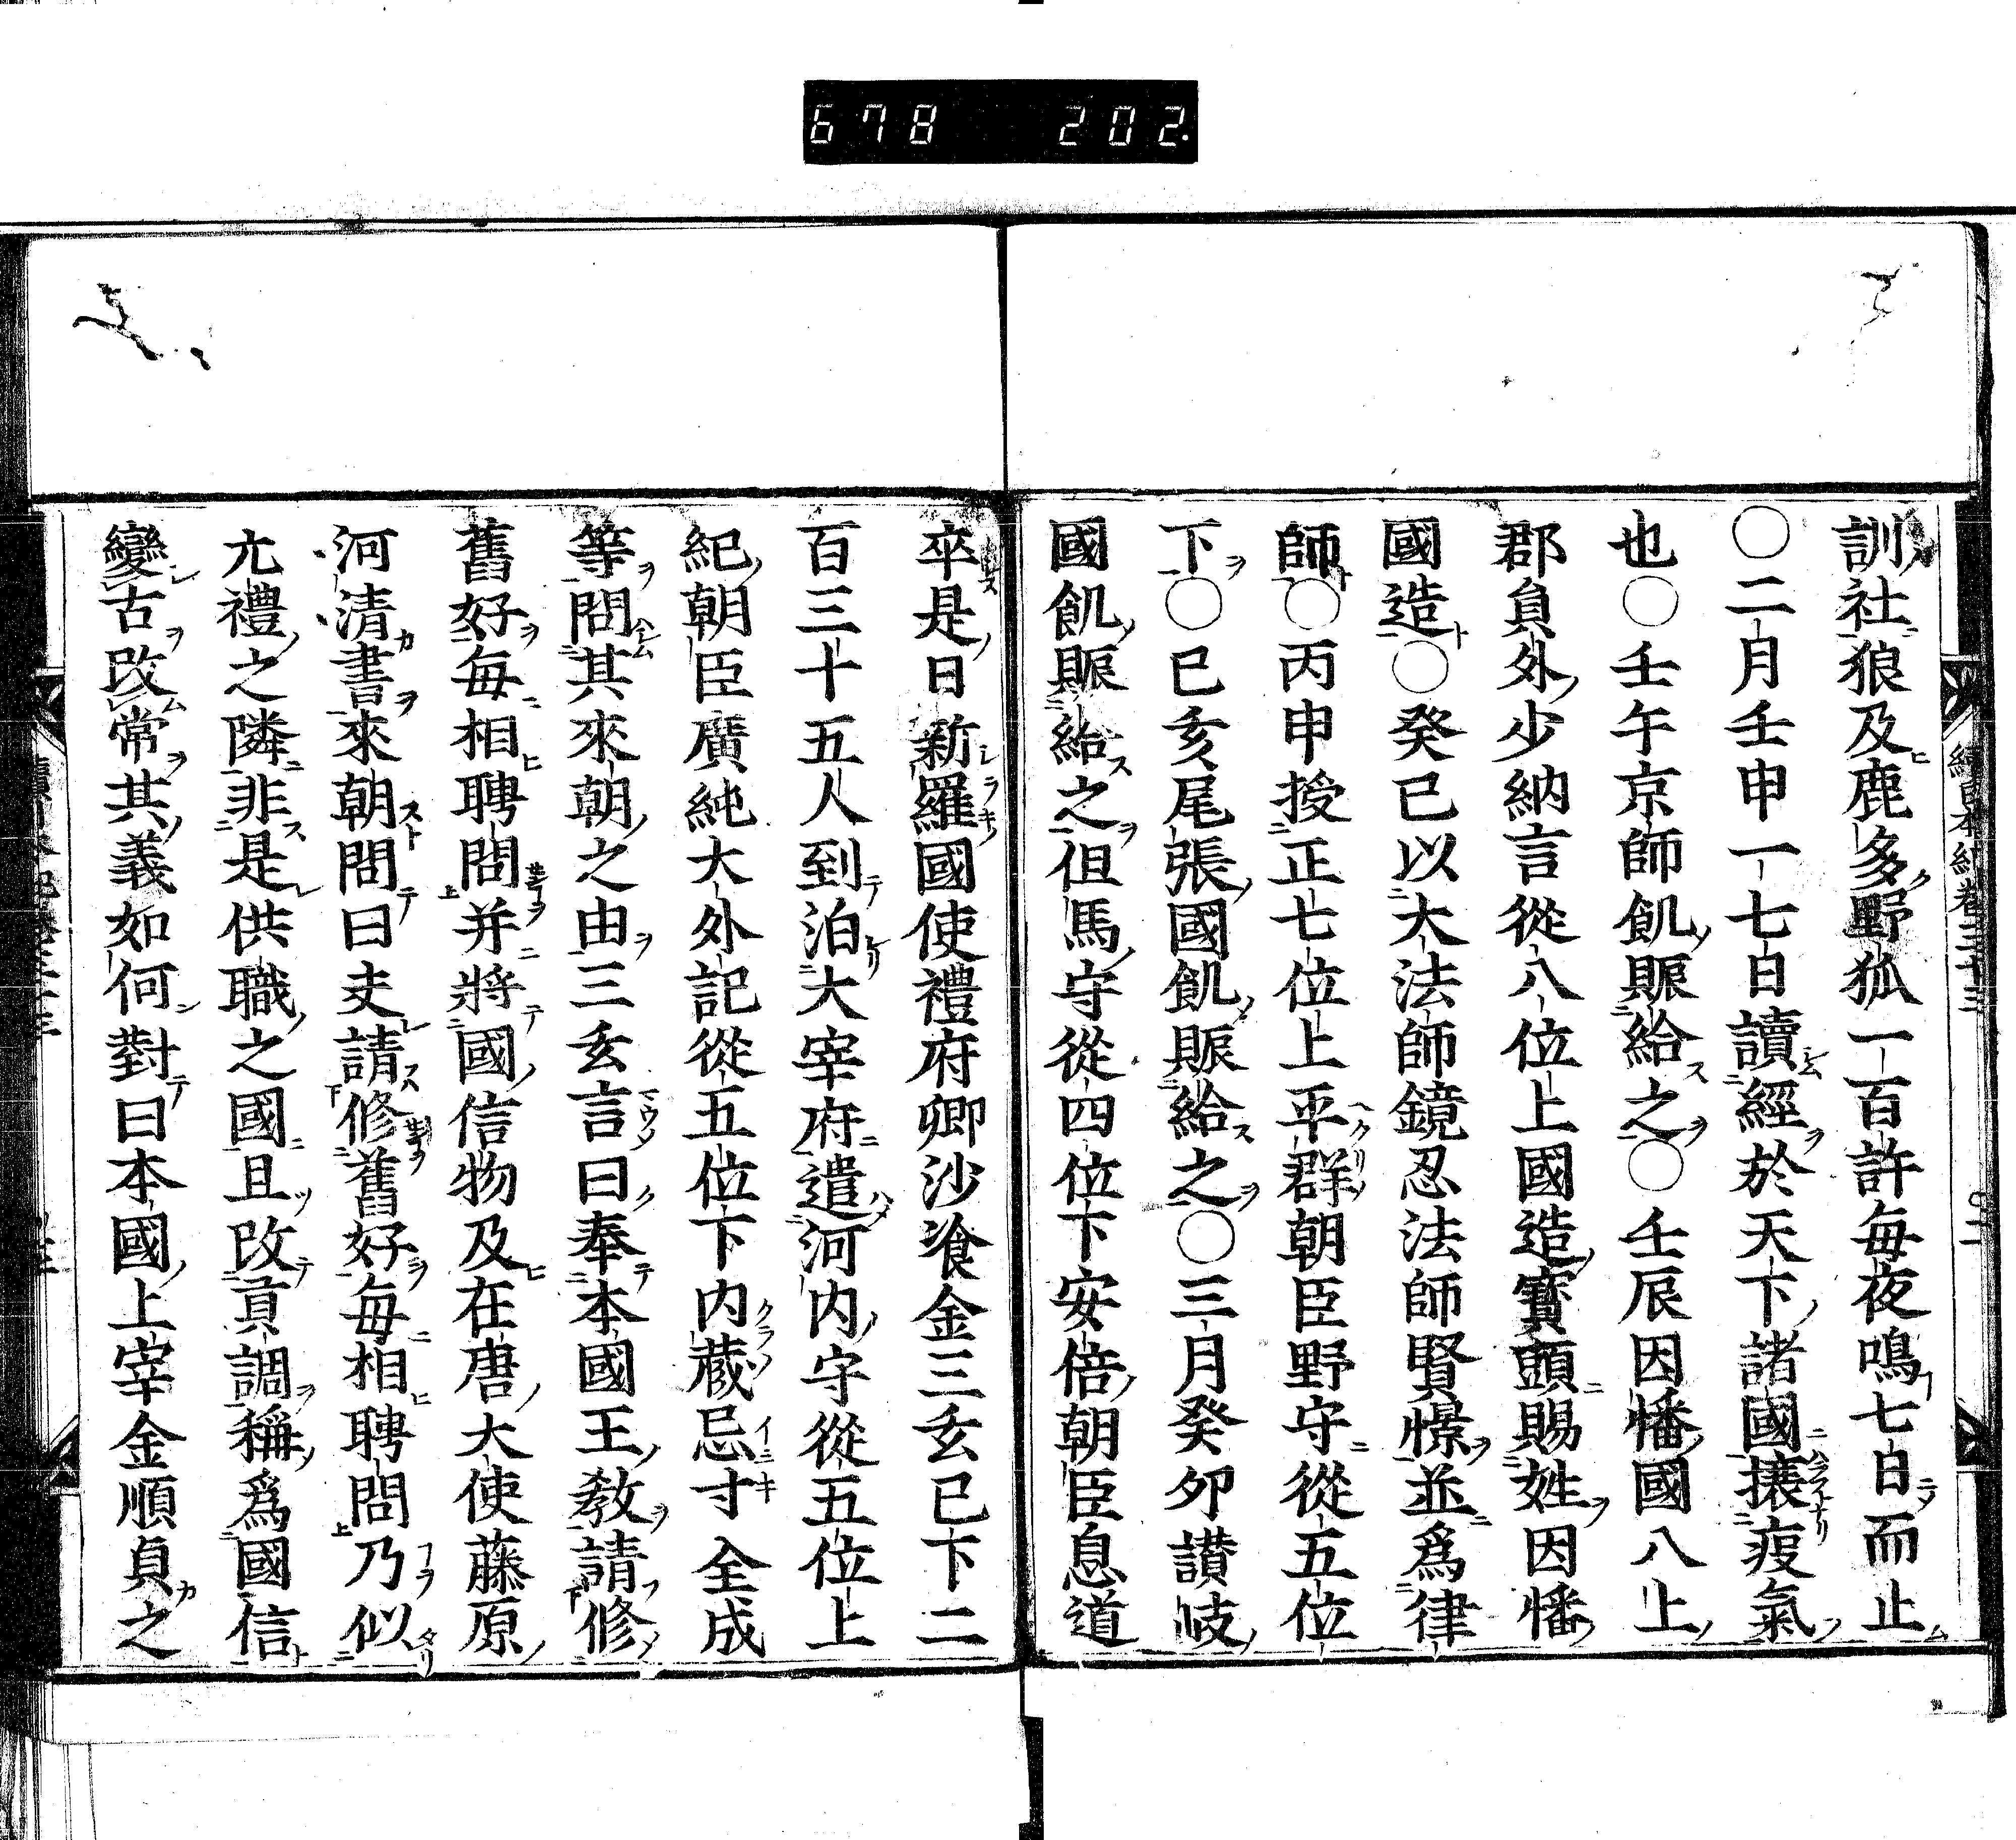 678 202
訓社狼及鹿多野狐一百許毎夜鳴七日而止
○二月壬申一七日讀經於天下諸國攘疫氣
也○壬午京師飢賑給之○壬辰因幡國八上
郡員外少納言從八位上國造寳頭賜姓因幡
國造○癸巳以大法師鏡忍法師賢憬並爲律
師○丙申授正七位上平群朝臣野守從五位
下○已亥尾張國飢賑給之○三月癸夘讃岐
國飢賑給之但馬守從四位下安倍朝臣息道
卒是日新羅國使禮府卿沙飡金三玄已下二
百三十五人到泊大宰府遣河内守從五位上
紀朝臣廣純大外記從五位下内蔵忌寸全成
等問其來朝之由三玄言曰奉本國王教請修
舊好毎相聘問并將國信物及在唐大使藤原
河清書來朝問曰夫請修舊好毎相聘問乃似
亢禮之隣非是供職之國且改貢調稱爲國信
變古改常其義如何對曰本國上宰金順貞之